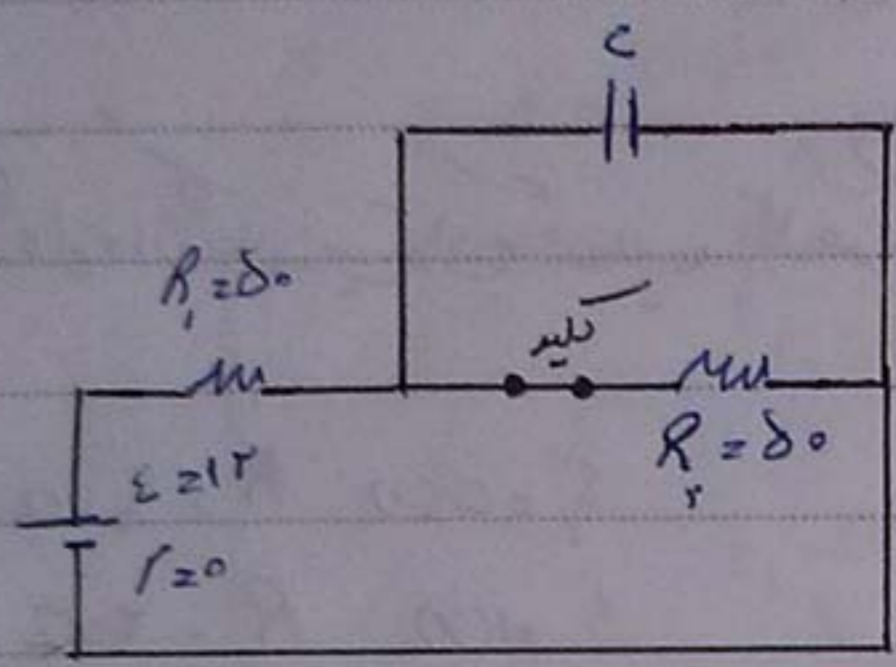 C
R₁=۵۰
کلید
R₂=۵۰
ε=۱۲
r=۰